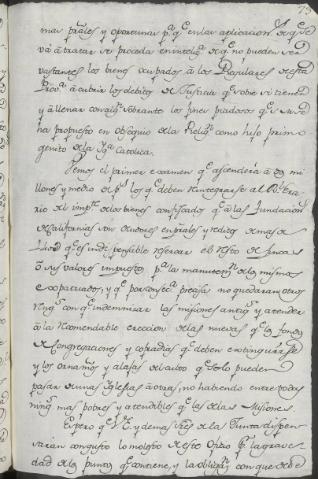 mas grales y oportunas pa. qe. en la aplicacion
va á tratar se proceda en inteliga. de qe. no pueden ser
vastantes los bienes ocupados á los Regulares de esta
Prova. á cubrir los debitos de Justicia qe. sobre si tienen
y á llenar con algn. sobrante los fines piadosos qe. su
ha propuesto en obsequio de la Religon. como hijo primo
genito de la Yga. Catolica.
Vemos el primer examen qe. ascenderá á dos mi
llones y medio de ps. los qe. deben reintegrarse al Rl. Era
rio del impte. de los bienes confiscados qe. á las Fundacions.
de Californias son deudores en prales. y reditos de mas de
qe. es indispensable reservar el resto de fincas
ó sus valores impuesto pa. la manutencn. de los mismos
expatriados, y qe. por conseqa. precisa no quedaran otros
con qe. indemnizar las misiones antigs. y atender
á la recomendable ereccion de las nuevas qe. los fondos
de Congregaciones y cofradias qe. deben extinguirse
y los ornamtos. y alajas del culto qe. solo pueden
pasar de unas Yglesias á otras, no habiendo entre todas
nings. mas pobres y atendibles qe. las de las Misiones.
Espero qe. V.E. y demas Sres. de la Junta dispen
sarán con gusto lo molesto de este Oficio pr. la grave
dad de los puntos qe. contiene, y la obligacn. con que debe